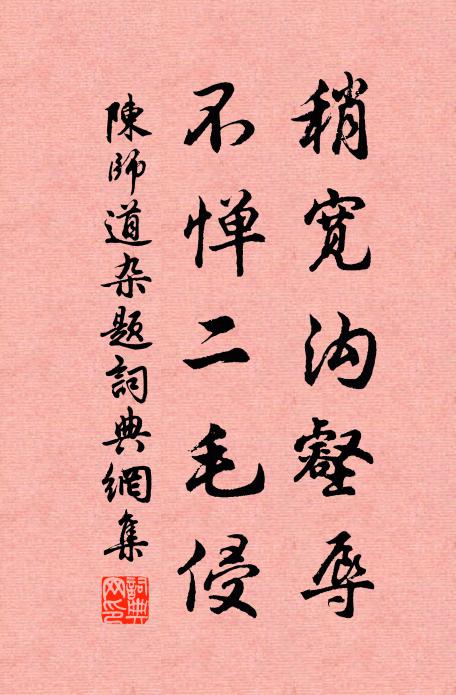 稍寬沟壑辱
不惮二毛侵
陳師道杂题詞典網集
詞典网印